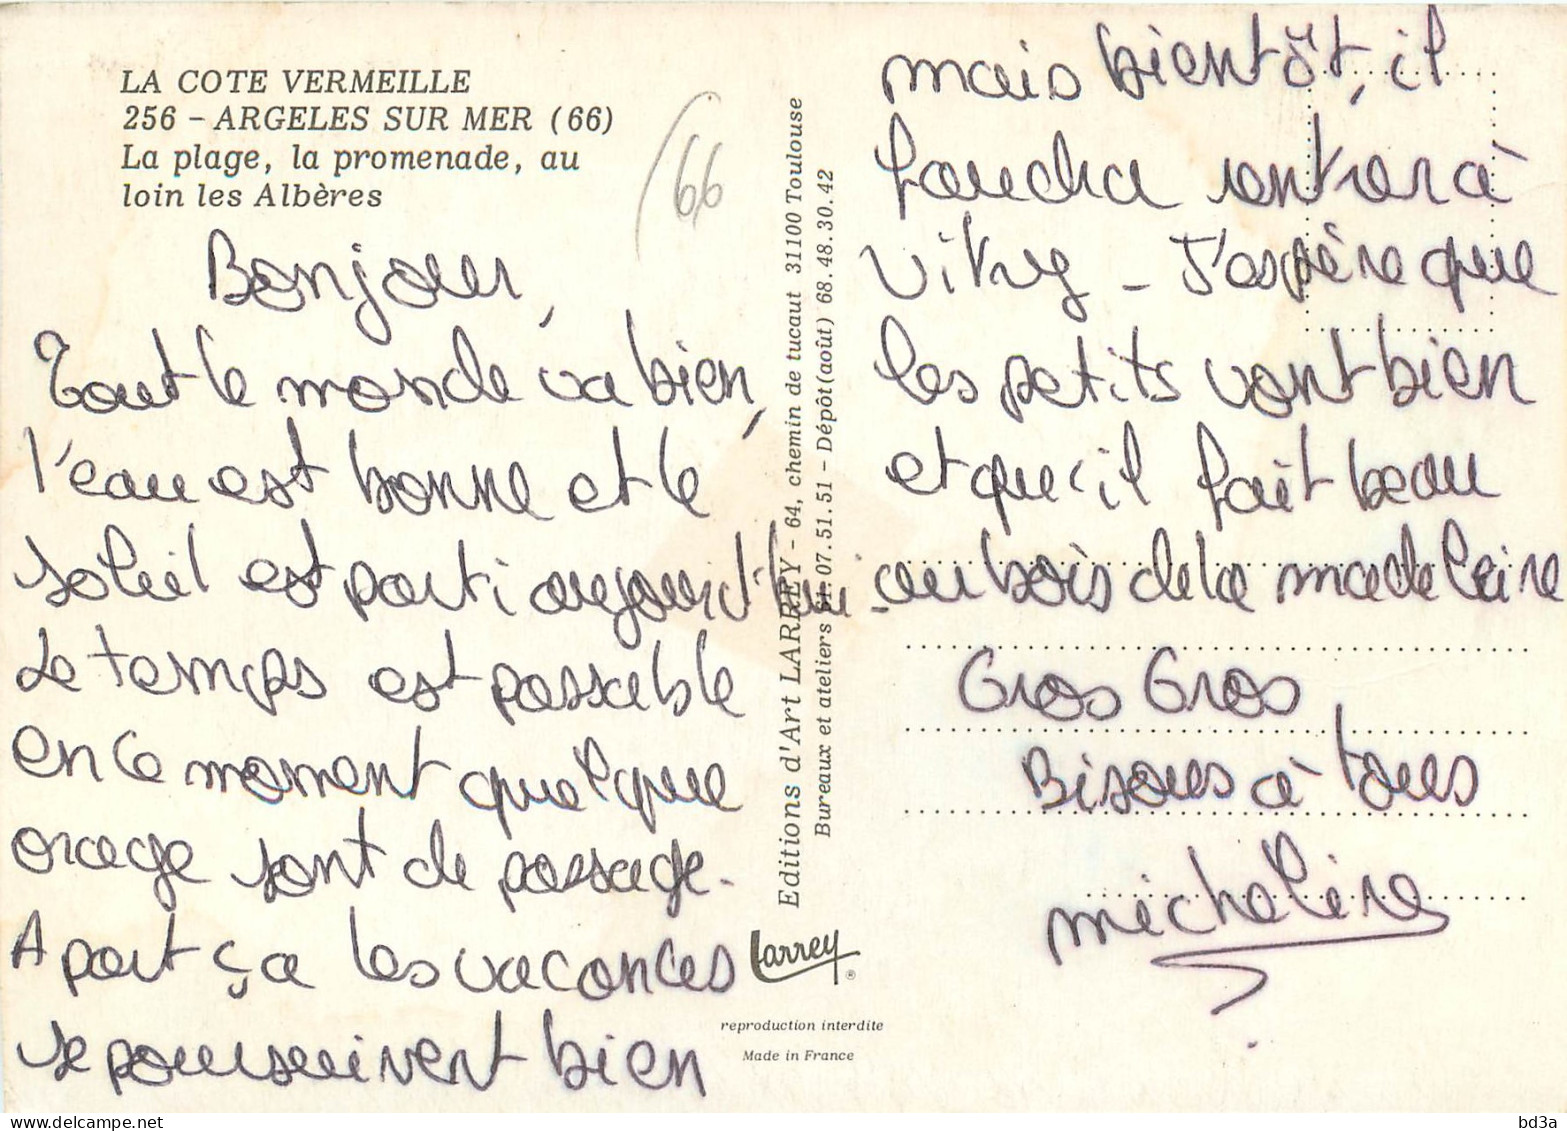 LA COTE VERMEILLE
256 - ARGELES SUR MER (66)
La plage, la promenade, au
loin les Albères
66
Bonjour,
Tout le monde va bien,
l'eau est bonne et le
soleil est parti aujourd'hui.
Le temps est passable
en ce moment quelque
orage sont de passage.
A part ça les vacances
se poursuivent bien
Editions d'Art LARREY - 64, chemin de tucaut 31100 Toulouse
Bureaux et ateliers 61.07.51.51 - Dépôt (août) 68.48.30.42
Larrey ®
reproduction interdite
Made in France
mais bientôt, il
faudra rentrer à
Vitry - J'espère que
les petits vont bien
et qu'il fait beau
au bois de la madeleine
Gros Gros
Bisous à tous
micheline
www.delcampe.net
bd3a